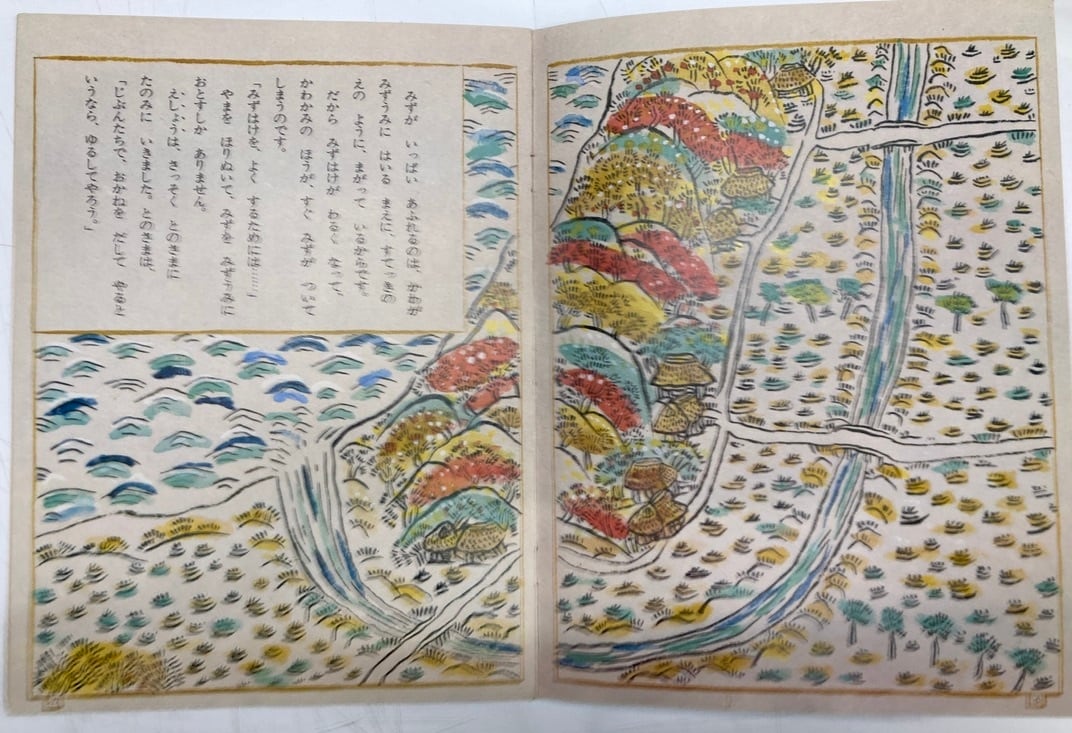 みずが いっぱい あふれるのは、かわが
みずうみに はいる まえに、すて
えの ように、まがって いるからです。
だから みずはけが わるく なって、
かわかみの ほうが、すぐ みずが
しまうのです。
「みずはけを、よく するためには……」
やまを ほりぬいて、みずを みずうみに
おとすしか ありません。
えしょうは、さっそく とのさまに
たのみに いきました。とのさまは、
「じぶんたちで、おかねを だして やると
いうなら、ゆるしてやろう。」